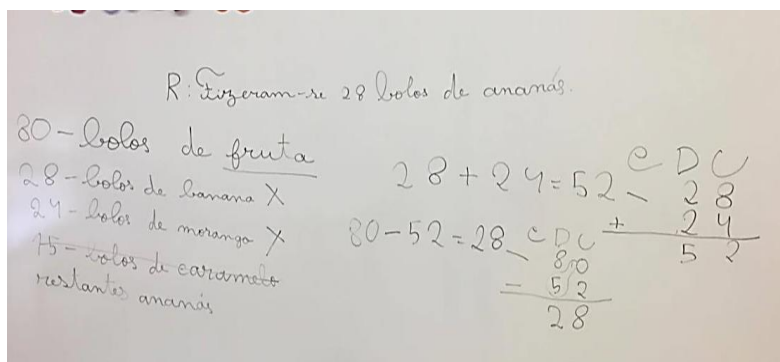 R: Fizeram-se 28 bolos de ananás.
80 - bolos de fruta
28 - bolos de banana X
24 - bolos de morango X
75 - bolos de caramelo
restantes ananás
28 + 24 = 52
C D U
28
+ 24
52
80 - 52 = 28
C D U
80
- 52
28